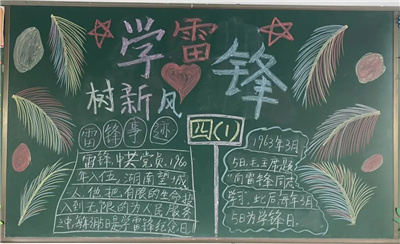 学雷锋
树新风
雷锋事迹
四(1)
雷锋,中共党员,1960
年入伍,湖南望城
人,他把有限的生命投
入到无限的为人民服务
之中,日是学雷锋纪念日
1963年3月
5日,毛主席题
"向雷锋同志
学习",此后每年3月
5日为学锋日.